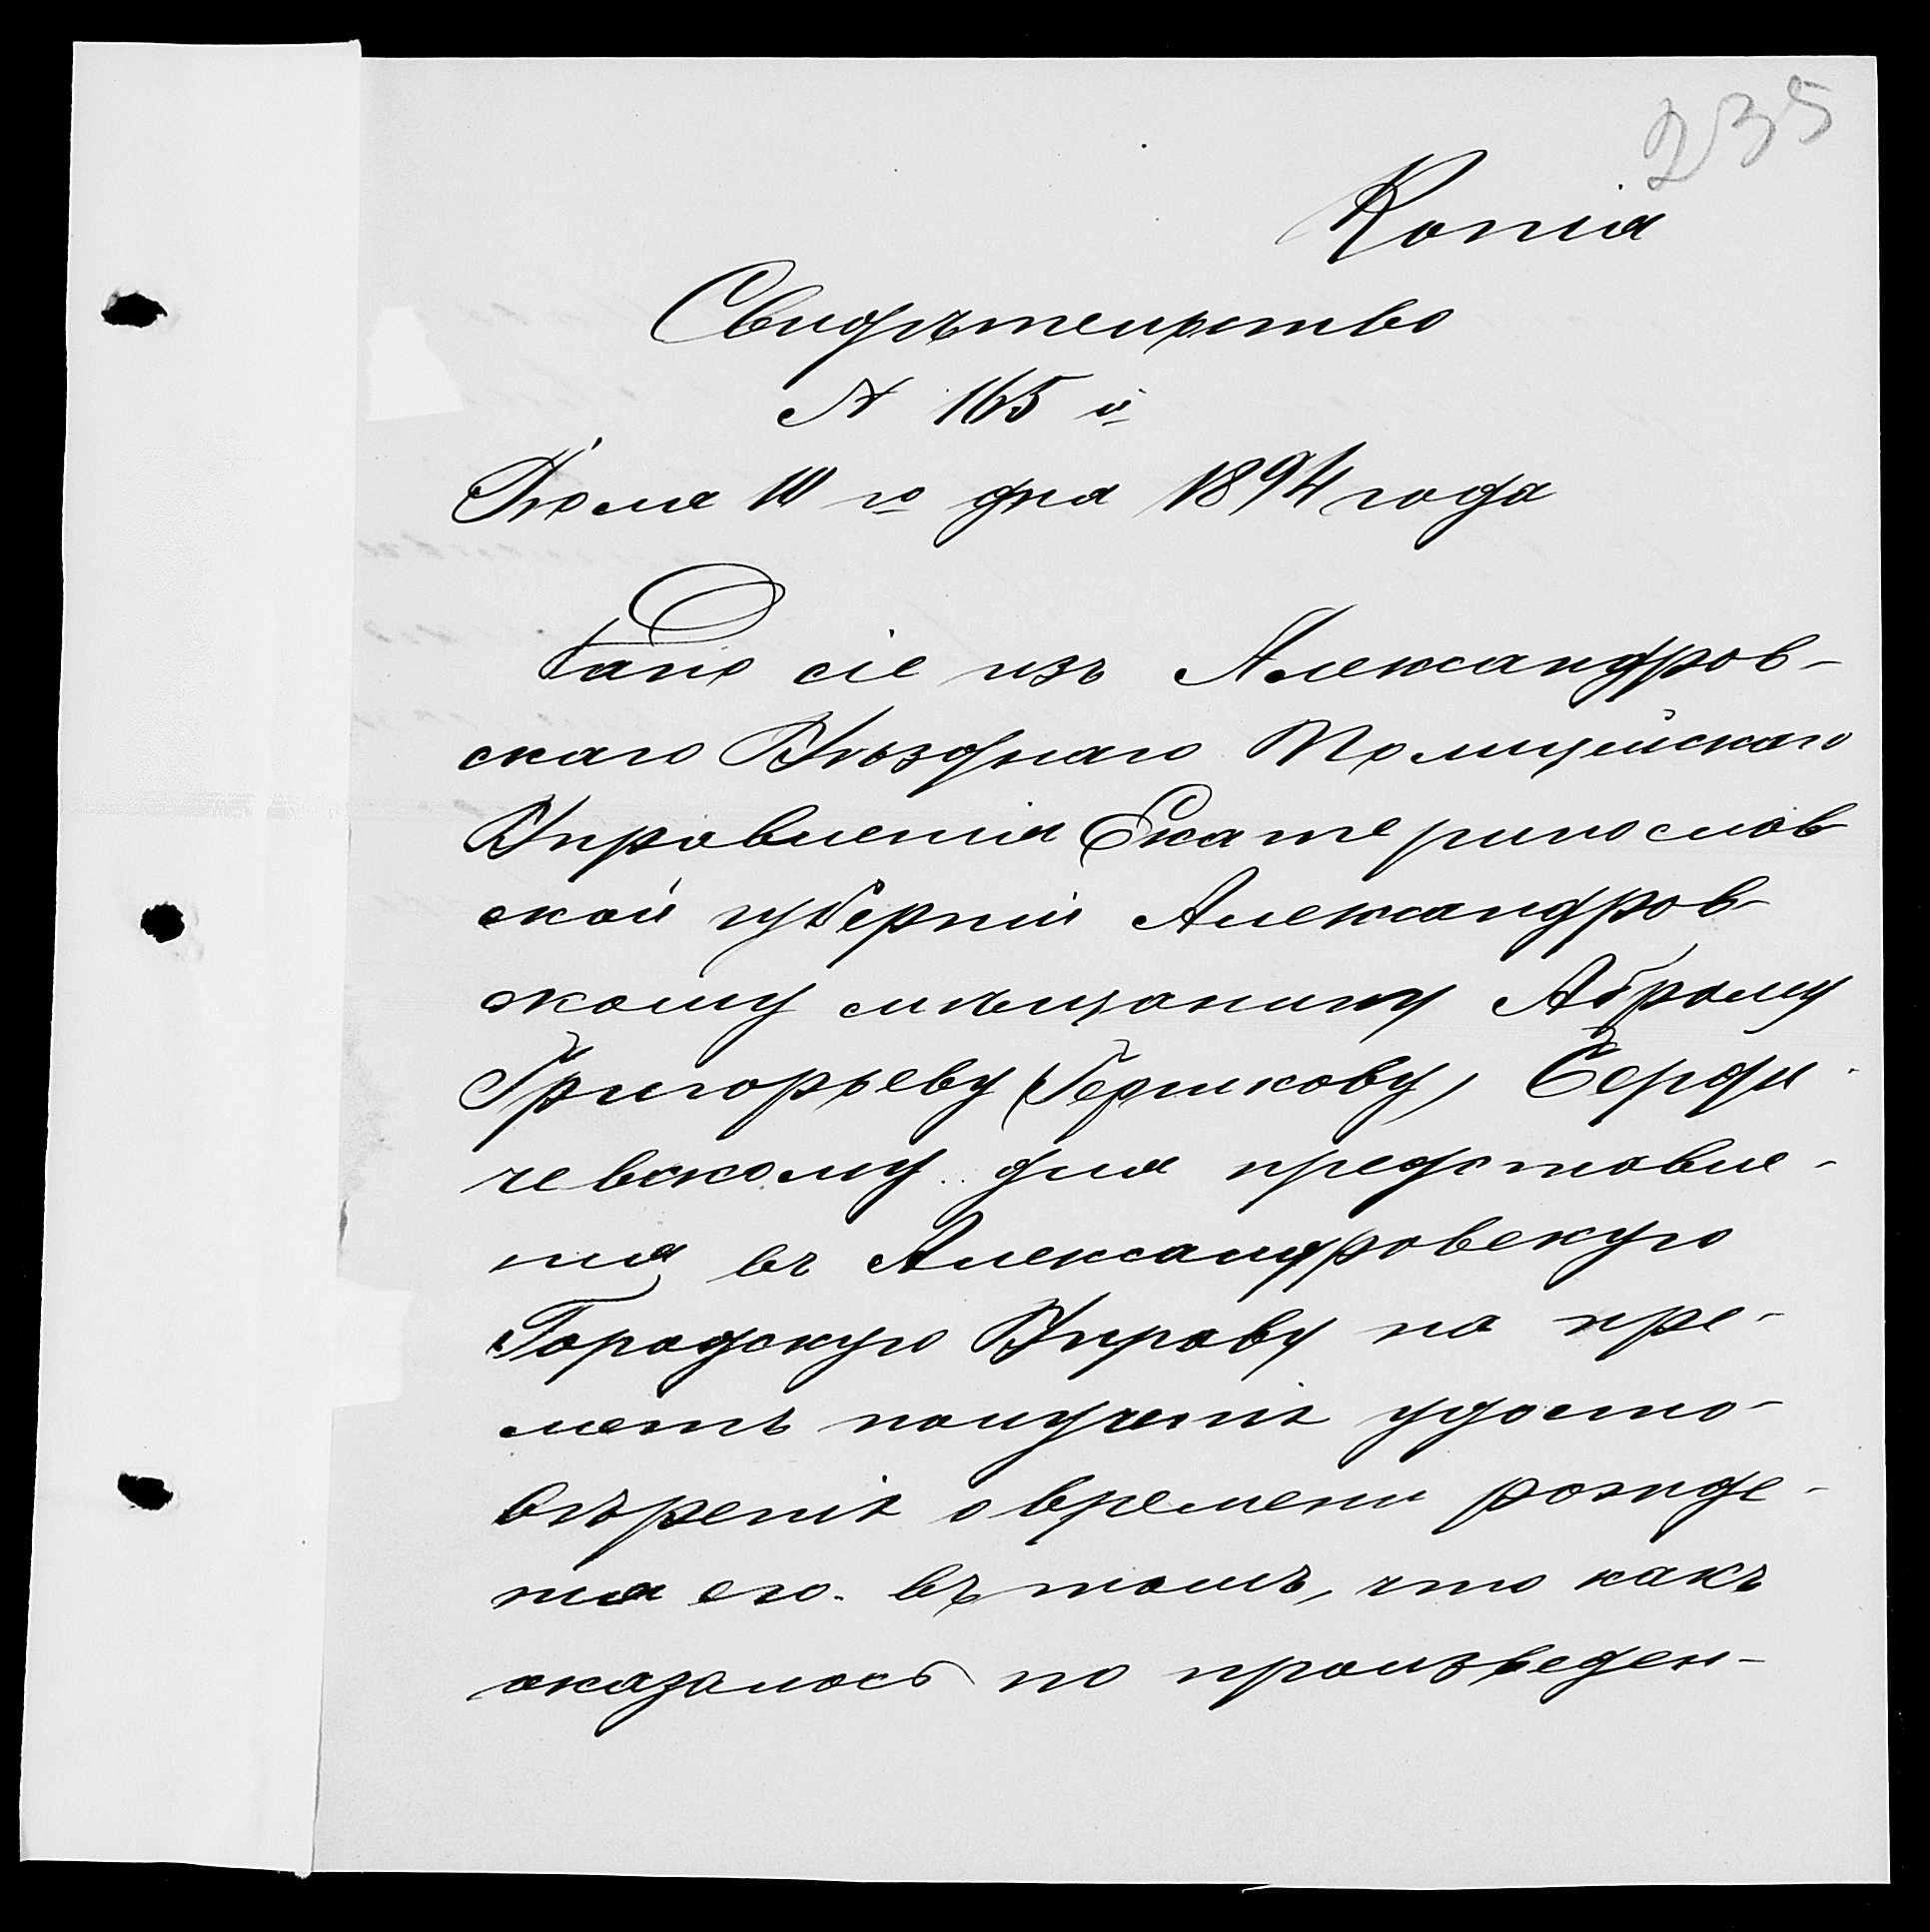 235
Копія
Свидѣтельство
№ 165 й
Іюля 10 го дня 1894 года
Дано сіе изъ Александров-
скаго Уѣзднаго Полицейскаго
Управленія Екатеринослав
ской губерніи Александров-
скому мѣщанину Абраму
Григорьеву (Гершкову) Берди-
чевскому для представле-
нія въ Александровскую
Городскую Управу на пре-
метъ полученія удосто-
вѣренія о времени рожде-
нія его въ томъ, что какъ
оказалось по произведен-